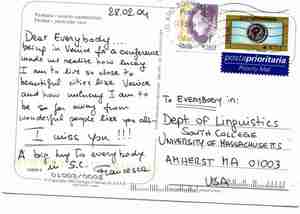 28.02.04
Dear Everybody...
being in Venice for a conference
made me realize how lucky
I am to live so close to
beautiful cities like Venice
and how unlucky I am to
be so far away from
wonderful people like you all
I miss you!!!
A big hug to everybody
in S.C. Francesca
postaprioritaria
Priority Mail
To EVERYBODY in:
Dept of Linguistics
SOUTH COLLEGE
UNIVERSITY OF MASSACHUSETTS
AMHERST MA 01003
USA